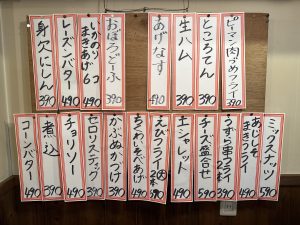 ピーマン肉づめフライ 390
ところてん 390
生ハム 390
あげなす 490
おぼろどーふ 390
いかのりまきあげ6コ 490
レーズンバター 490
身欠にしん 390
ミックスナッツ 490
あじしそまきフライ 490
うずら串フライ2本 390
チーズ盛合せ 590
エシャレット 490
えびフライ2本 490
ちくわいそべあげ 490
かぶぬかづけ 390
セロリスティック 390
チョリソー 490
煮込 390
コーンバター 490